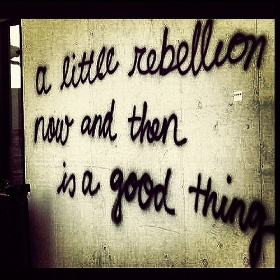 a little rebellion
now and then
is a good thing